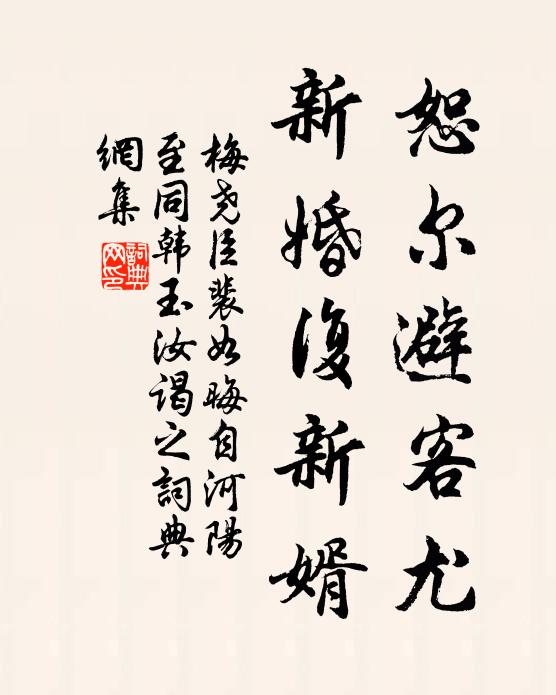 恕尔避客尤
新婚復新婿
梅尧臣裴如晦自河陽
至同韩玉汝谒之詞典
網集
詞典網印